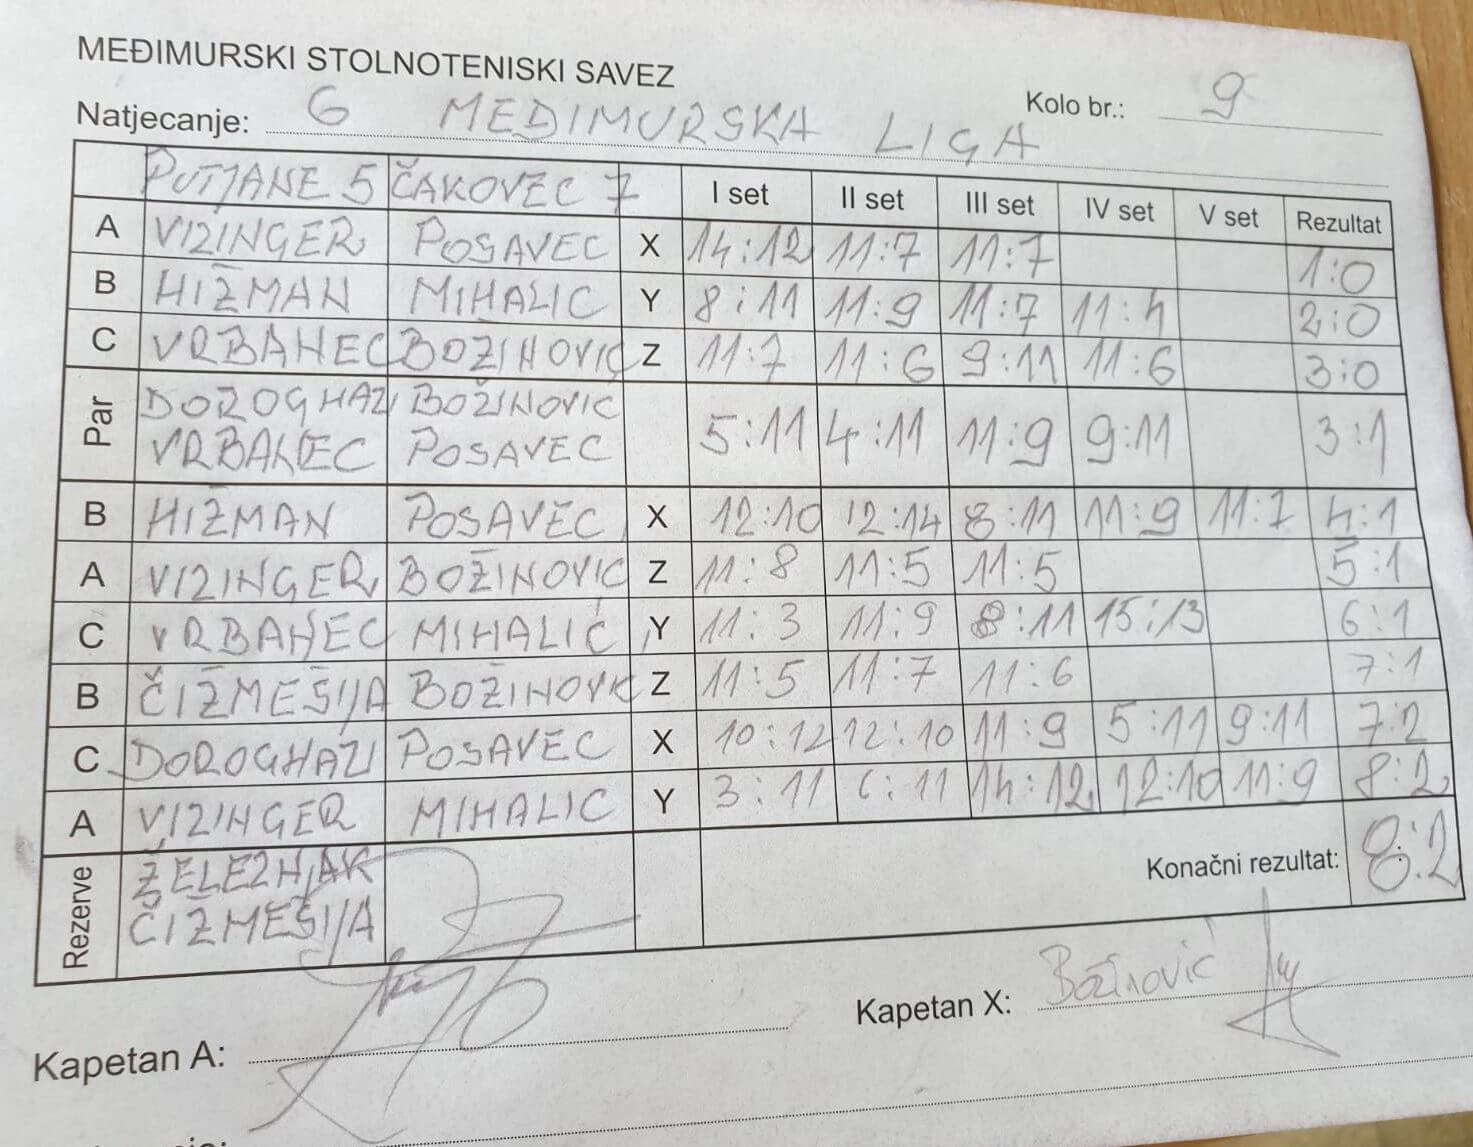 MEĐIMURSKI STOLNOTENISKI SAVEZ
Kolo br.: 9
Natjecanje: 6 MEĐIMURSKA LIGA
PUTJANE 5 ČAKOVEC 7 I set II set III set IV set V set Rezultat
A VIZINGER POSAVEC X 14:12 11:7 11:7 1:0
B HIŽMAN MIHALIC Y 8:11 11:9 11:7 11:4 2:0
C VRBANEC BOŽINOVIĆ Z 11:7 11:6 9:11 11:6 3:0
Par DOROGHAZI BOŽINOVIC 5:11 4:11 11:9 9:11 3:1
VRBANEC POSAVEC
B HIŽMAN POSAVEC X 12:10 12:14 8:11 11:9 11:7 4:1
A VIZINGER BOŽINOVIC Z 11:8 11:5 11:5 5:1
C VRBANEC MIHALIĆ Y 11:3 11:9 8:11 15:13 6:1
B ČIŽMEŠIJA BOŽINOVIC Z 11:5 11:7 11:6 7:1
C DOROGHAZI POSAVEC X 10:12 12:10 11:9 5:11 9:11 7:2
A VIZINGER MIHALIC Y 3:11 6:11 14:12 12:10 11:9 8:2
Rezerve ŽELEZNJAK
ČIŽMEŠIJA
Konačni rezultat: 8:2
Kapetan A:
Kapetan X: Božinović